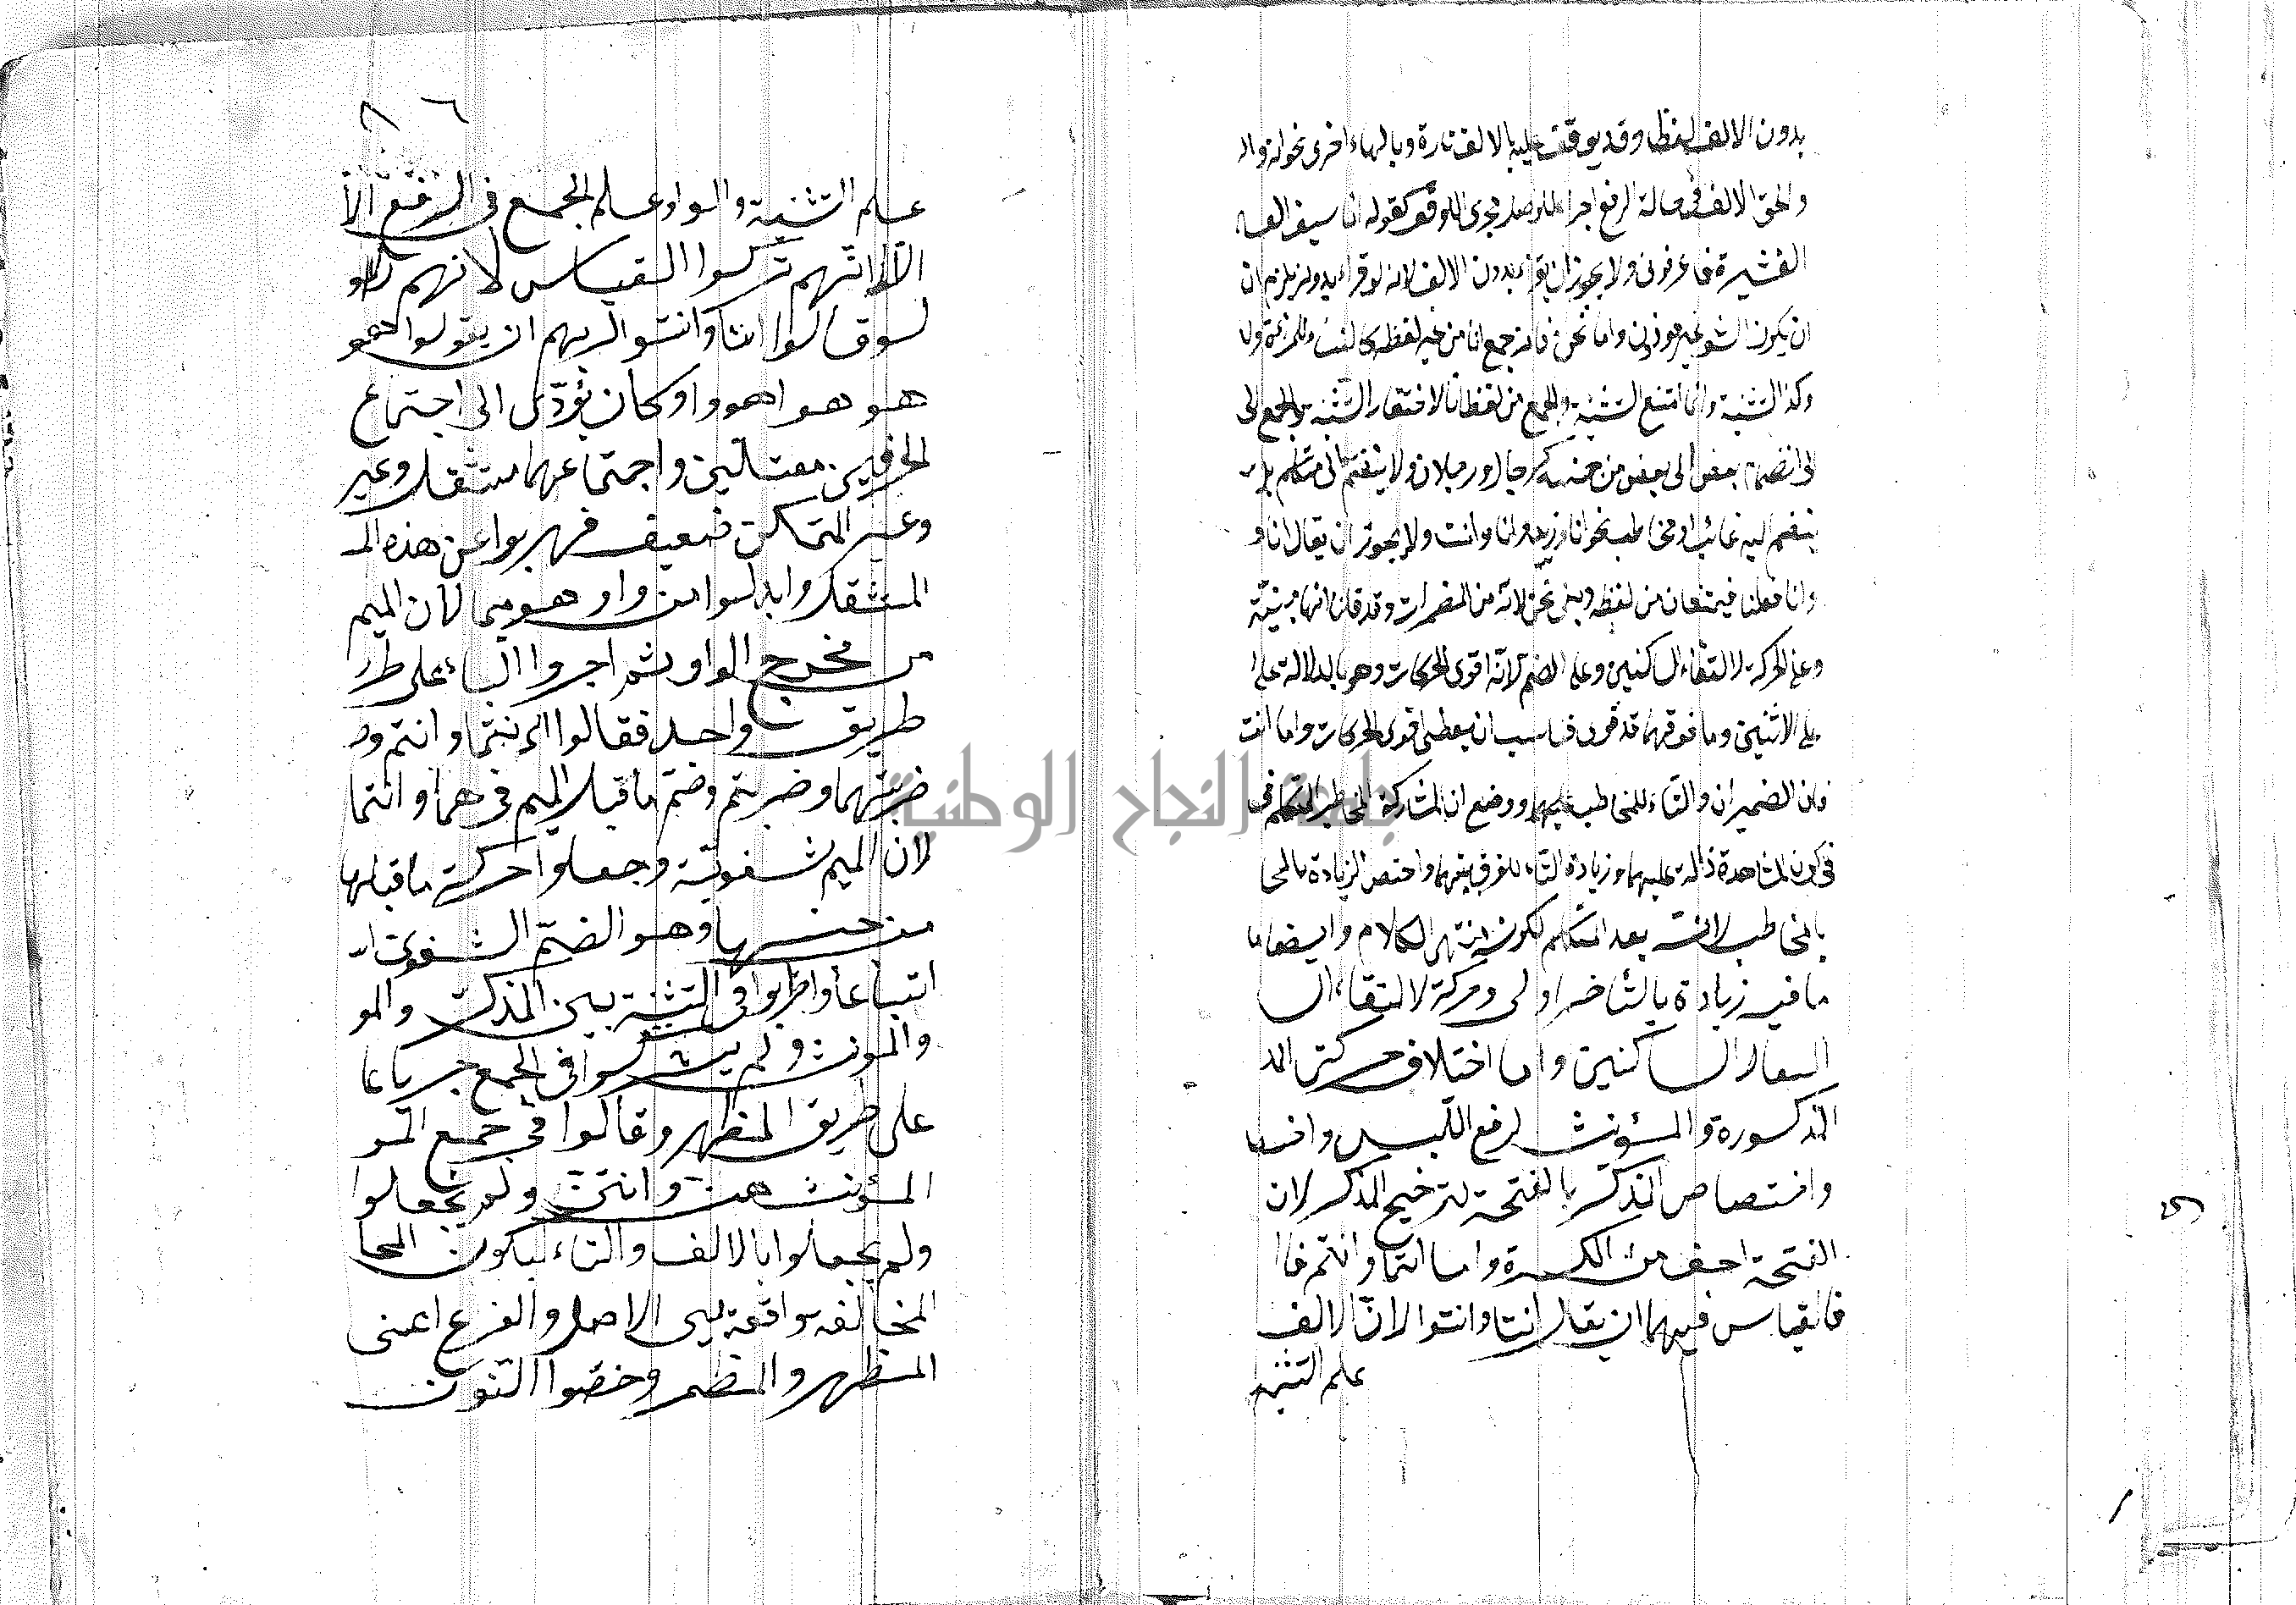 بدون الالف لفظا وقد يوقف عليه بالالف تارة وبالهاء اخرى نحو انه وال
والحق الالف في حالة الرفع اجراء للوصل مجرى الوقف كقوله انا سيف الع
العشيرة فاعرفوني ولا يجوز ان يقرأ بدون الالف لانه لو قرأ بدونه يلزم ان
ان يكون الشعر غير موزون واما نحن فانه جمع انا من غير لفظه كالنساء للمرءة ولا
وكذا التثنية وانما امتنع التثنية والجمع من لفظ انا لافتقار التثنية والجمع الى
الى انضمام بعض الى بعض من جنسه كرجال ورجلان ولا ينضم الى متكلم بل
ينضم اليه غائب او مخاطب نحو انا وزيد وانا وانت ولا يجوز ان يقال انا و
وانا فعلنا فيمتنعان من لفظه وبنى نحن لانه من المضمرات وقد قلنا انها مبنية
وعلى الحركة لالتقاء الساكنين وعلى الضم لانه اقوى الحركات وهو بالدلالة على
على الاثنين وما فوقهما قد قوى فناسب ان يعطى اقوى الحركات واما انت
فان الضمير ان والتاء للمخاطب عليهما ووضع ان لمشاركة المخاطب المتكلم في
في كون المشاهدة دالة عليهما وزيادة التاء للفرق بينهما واختص الزيادة بالمخا
بالمخاطب لانه بعد المتكلم لكونه ينتهي الكلام وايضا ما
ما فيه زيادة بالتاخير اولى وحركة لالتقاء ال
الساكنين واما اختلاف حركتي المذ
المذكورة والمؤنث لرفع اللبس واختصا
واختصاص المذكر بالفتحة لترجيح المذكر لان
الفتحة اخف من الكسرة واما انتما وانتم فا
فالقياس فيهما ان يقال انتا وانتوا لان الالف
علم التثنية
٨٦
علم التثنية والواو علم الجمع في الرفع الا
الا انهم تركوا القياس لانهم لو
لو قالوا انتا وانتوا لزمهم ان يقولوا هو
هو هوا هووا وكان يؤدى الى اجتماع
الحرفين معتلين واجتماعهما مستثقل وغير
وغير المتمكن ضعيف فهربوا عن هذه الم
المستثقل وابدلوا من واو هو ميما لان الميم
من مخرج الواو ثم اجروا الباء على طر
طريق واحد فقالوا انتما وانتم وضر
ضربتهما وضربتم وضم ما قبل الميم في هما وانتما
لان الميم شفوية وجعلوا حركة ما قبلها
من جنسها وهو الضم الشفوى ا
اتباعا واطربوا في التثنية بين المذكر والمو
والمونث ولم يشركوا في الجمع جريا عا
على طريق المظهر وقالوا في جمع المو
المؤنث هن وانتن ولم يجعلوا
ولم يجعلوا بالالف والتاء ليكون المخا
المخالفة واقعة بين الاصل والفرع اعنى
المظهر والمضمر وخصوا النون
جامعة النجاح الوطنية